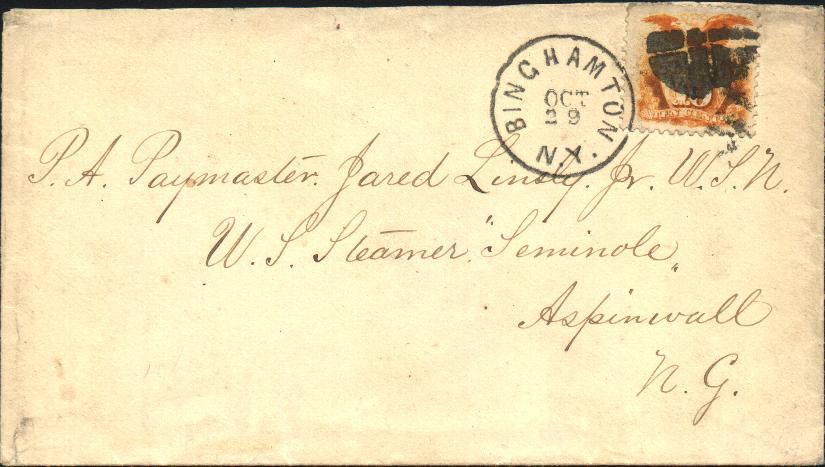 BINGHAMTON N.Y.
OCT
29
10
P. A. Paymaster. Jared Linsly. Jr. U.S.N.
U. S. Steamer. "Seminole"
Aspinwall
N. G.